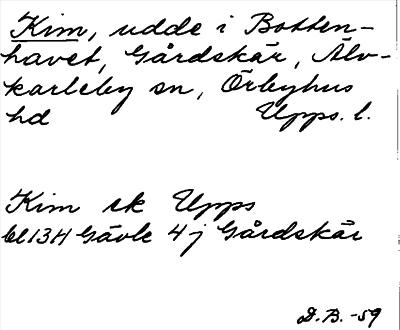 Kim, udde i Botten-
havet, Gårdskär, Älv-
karleby sn, Örbyhus
hd Upps. l.
Kim ek Upps
bl 13H Gävle 4j Gårdskär
D.B. -59